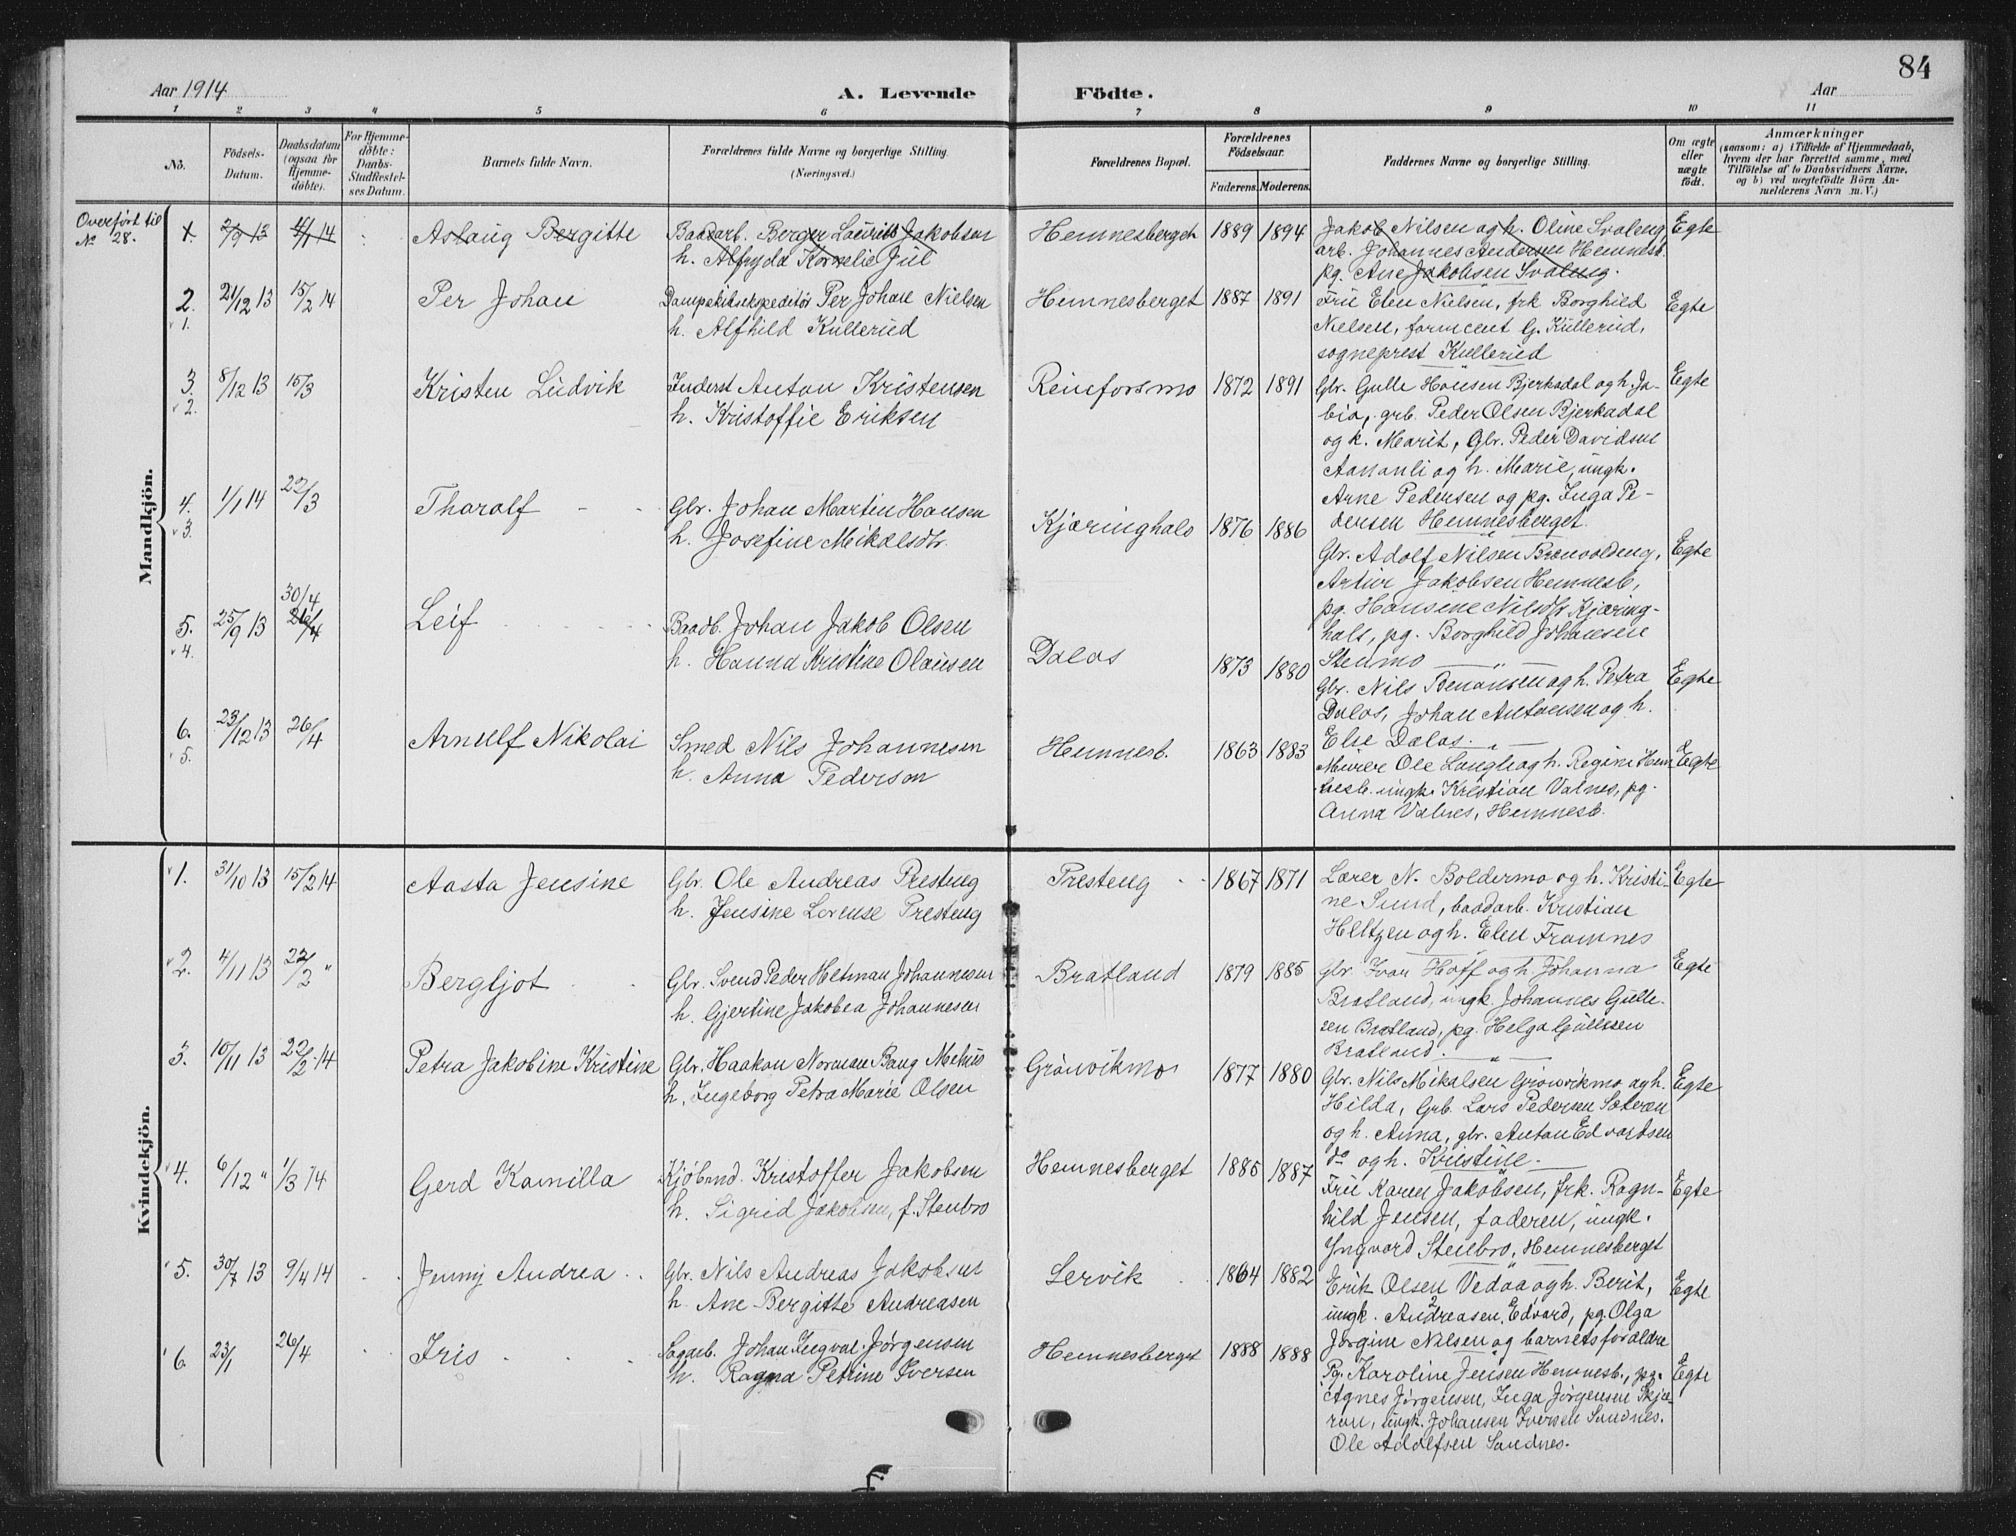 84
Aar 1914
A. Levende Födte.
Aar
1 2 3 4 5 6 7 8 9 10 11
No.
Födsels-Datum.
Daabsdatum (ogsaa for Hjemmedöbte).
For Hjemmedöbte: Daabs-Stadfæstelses Datum.
Barnets fulde Navn.
Forældrenes fulde Navne og borgerlige Stilling.
(Næringsvei.)
Forældrenes Bopæl.
Forældrenes Födselsaar.
Faderens. Moderens.
Faddernes Navne og borgerlige Stilling.
Om ægte eller uægte födt.
Anmærkninger
(saasom: a) i Tilfælde af Hjemmedaab, hvem der har forrettet samme, med Tilföielse af to Daabsvidners Navne, og b) ved uægtefödte Börn Anmelderens Navn m. V.)
Mandkjön.
Overført til No 28.
1. 2/9 13 Aslaug Bergitte
Baadarb. Berger Laurits Jakobsen
h. Alfryda Kornelie Jul
Hemnesberget 1889 1894
Jakob Nilsen og h. Oline Svaleng
arb. Johannes Andersen Hemnesb.
pg. Ane Jakobsen Svaleng.
Egte
2. v 1. 21/12 13 15/2 14 Per Johan
Dampskibsekspeditør Per Johan Nielsen
h. Alfhild Kullerud
Hemnesberget 1887 1891
Fru Elen Nielsen, frk Borghild
Nielsen, G. Kullerud,
sogneprest Kullerud
Egte
3. v 2. 8/12 13 15/3 Kristen Ludvik
Inderst Anton Kristensen
h. Kristoffie Eriksen
Reinforsmo 1872 1891
Gbr. Gulle Hansen Bjerkadal og h. Ja-
bia, grb. Peder Olsen Bjerkadal
og k. Marit, Gbr. Peder Davidsen
Aananli og h. Marie, ungk.
Arne Pedersen og pg. Inga Pe-
dersen Hemnesberget.
Egte
4. v 3. 1/1 14 22/3 Tharalf
Gbr. Johan Martin Hansen
h. Josefine Mikalsdtr.
Kjæringhals 1876 1886
Gbr. Adolf Nilsen Brænvoldeng,
Artur Jakobsen Hemnesb,
pg. Hansine Nilsdtr Kjæring-
hals, pg. Borghild Johansen
Stenmo
Egte
5. v 4. 25/9 13 30/4 26/4 Leif
Baadb. Johan Jakob Olsen
h. Hanna Kristine Olausen
Dalos 1873 1880
Gbr. Nils Benonsen og h. Petra
Dalos, Johan Antonsen og h.
Else Dalos.
Egte
6. v 5. 23/12 13 26/4 Arnulf Nikolai
Smed Nils Johannesen
h. Anna Pederson
Hemnesb. 1863 1883
Murer Ole Langli og h. Regine Hem
nesb. ungk. Kristian Valnes, pg.
Anna Valnes, Hemnesb.
Egte
Kvindekjön.
v 1. 31/10 13 15/2 14 Aasta Jensine
Gbr. Ole Andreas Presteng
h. Jensine Lorense Presteng
Presteng 1867 1871
Lærer N. Boldermo og h. Kristi-
ne Sund, baadarb. Kristian
Heltzen og h. Elen Framnes
Egte
v 2. 4/11 13 22/2 " Bergljot
Gbr. Svend Peder Hetman Johannesen
h. Gjertine Jakobea Johannesen
Bratland 1879 1885
Gbr Ivar Hoff og h. Johanna
Bratland, ungk Johannes Gulle-
sen Bratland, pg. Helga Gullesen
Bratland.
Egte
3. 10/11 13 22/2 14 Petra Jakobine Kristine
Gbr. Haakon Norman Bang Mehus
h. Ingeborg Petra Marie Olsen
Grönvikmo 1877 1880
Gbr. Nils Mikalsen Grönvikmo og h.
Hilda, Grb. Lars Pedersen Sæteren
og h. Anna, gbr. Anton Edvardsen
do og h. Kristine.
Egte
4. 6/12 " 1/3 14 Gerd Kamilla
Kjöbmd. Kristoffer Jakobsen
h. Sigrid Jakobsen, f. Stenbro
Hemnesberget 1885 1887
Fru Karen Jakobsen, frk. Ragn-
hild Jensen, faderen, ungk.
Yngvard Stenbro, Hemnesberget
Egte
5. 30/7 13 9/4 14 Jenny Andrea
Gbr. Nils Andreas Jakobsen
h. Ane Bergitte Andreasen
Lervik 1864 1882
Erik Olsen Vedaa og h. Berit,
ungk. Andreasen, Edvard, pg. Olga
Jørgine Nilsen og barnets foræld​re
Egte
6. 23/1 26/4 Iris
Sagarb. Johan Ingval. Jørgensen
h. Ragna Petrine Iversen
Hemnesberget 1888 1888
Pg. Karoline Jensen Hemnesb., pg.
Agnes Jørgensen, Inga Jørgensen Skjæ-
ran, ungk. Johansen Iversen Sundnes.
Ole Adolfsen Sandnes.
Egte